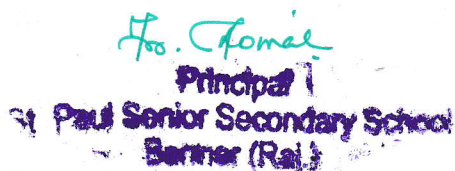 Principal
St Paul Senior Secondary School
Barmer (Raj.)